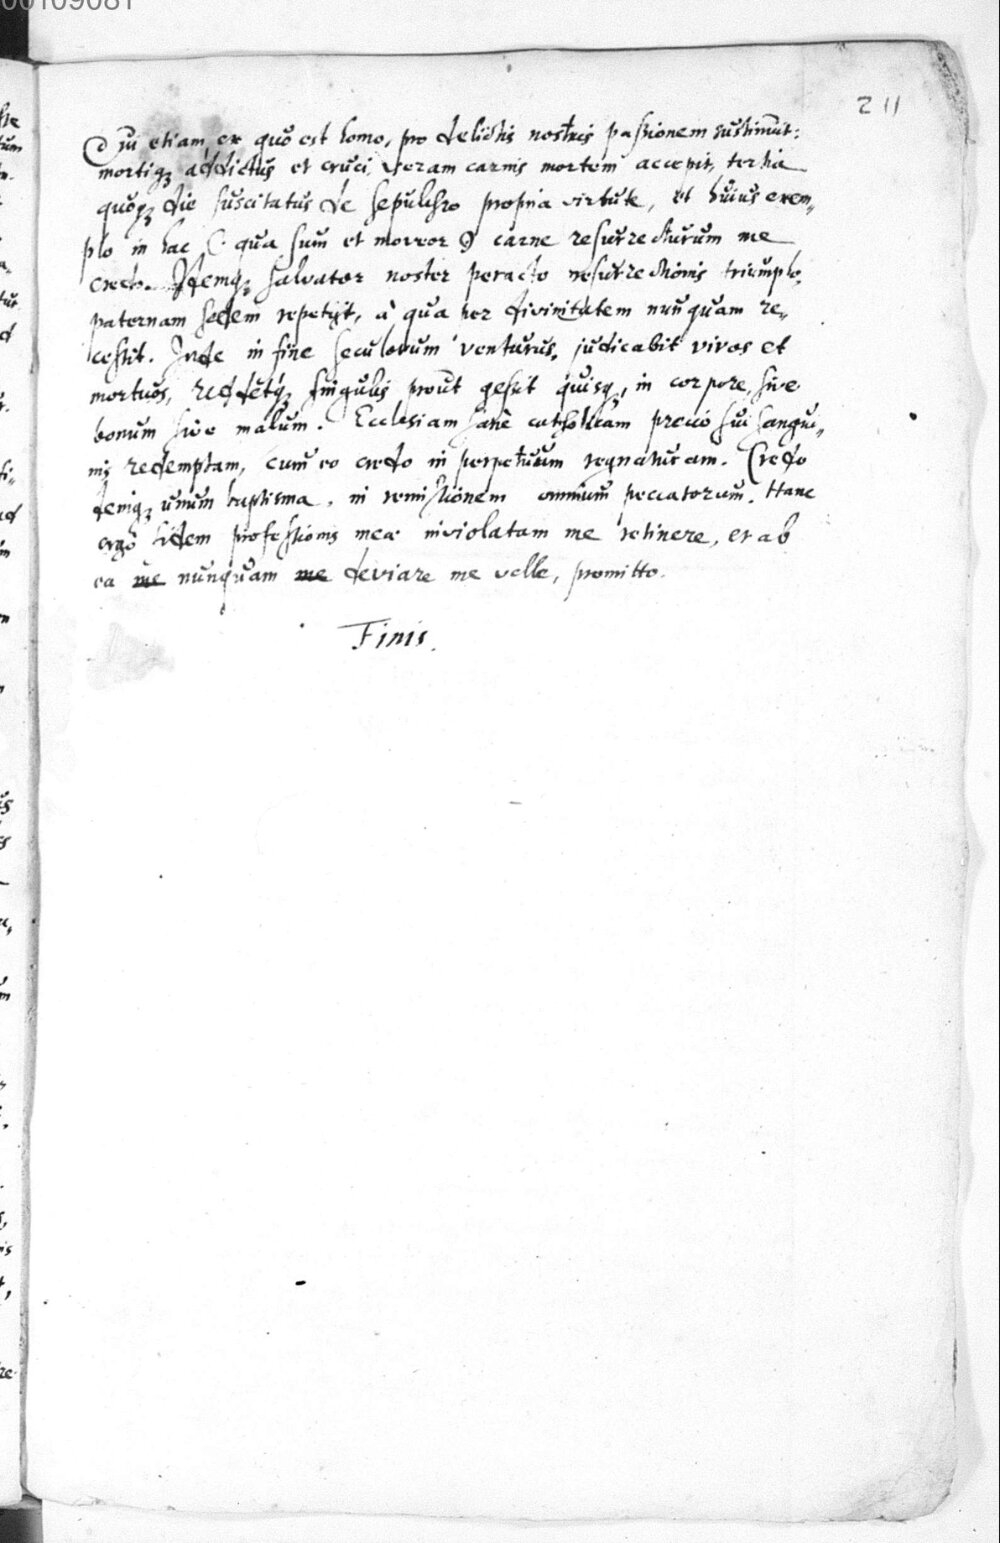 00109081
211
Qui etiam ex quo est homo, pro delictis nostris passionem sustinuit:
mortiq; addictus et cruci, veram carnis mortem accepit, tertia
quoq; die suscitatus de sepulchro propria virtute, et huius exem„
plo in hac (qua sum et moveor) carne resurrecturum me
credo. Itemq; salvator noster peracto resurrectionis triumpho,
paternam sedem repetijt, à qua per divinitatem nunquam re„
cessit. Inde in fine seculorum venturus, judicabit vivos et
mortuos, reddetq; singulis prout gessit quisq;, in corpore, sive
bonum sive malum. Ecclesiam sanè catholicam precio sui sangui„
nis redemptam, cum eo credo in perpetuum regnaturam. Credo
deniq; unum baptisma, in remissionem omnium peccatorum. Hanc
ergo fidem professionis meæ inviolatam me retinere, et ab
ea me nunquam me deviare me velle, promitto.
Finis.